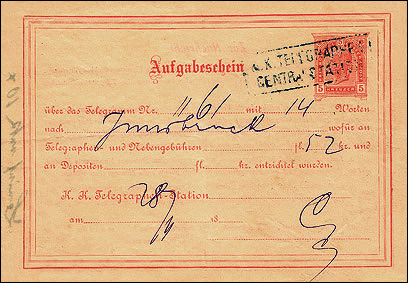 K.K. TELEGRAPHEN
CENTRAL STATION
Aufgabeschein
5 KREUZER 5
über das Telegramm Nr. 1161 mit 14 Worten
nach Innsbruck wofür an
Telegraphen- und Nebengebühren fl. 52 kr.
an Depositen fl. kr. entrichtet wurden.
K. K. Telegraphen-Station
am 28/ 18